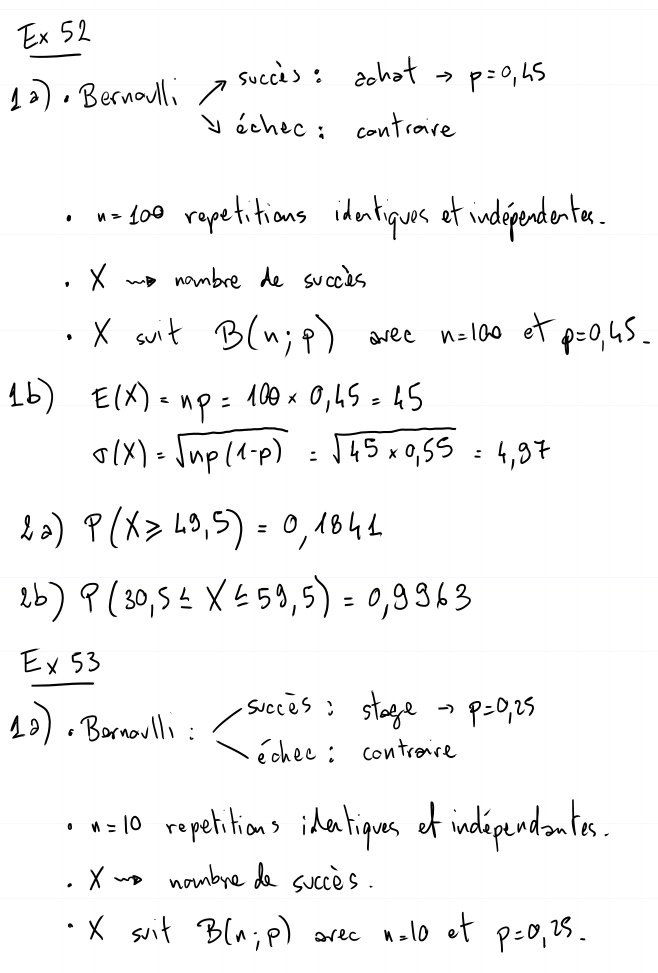 Ex 52
1a) • Bernoulli ↗ succès : achat → p=0,45
↘ échec : contraire
• n=100 repetitions identiques et indépendentes.
• X ⇝ nombre de succès
• X suit B(n;p) avec n=100 et p=0,45.
1b) E(X) = np = 100 × 0,45 = 45
σ(X) = √np(1-p) = √45 × 0,55 = 4,97
2a) P(X ≥ 49,5) = 0,1841
2b) P(30,5 ≤ X ≤ 59,5) = 0,9963
Ex 53
1a) • Bernoulli : succès : stage → p=0,25
échec : contraire
• n=10 repetitions identiques et indépendantes.
• X ⇝ nombre de succès.
• X suit B(n;p) avec n=10 et p=0,25.